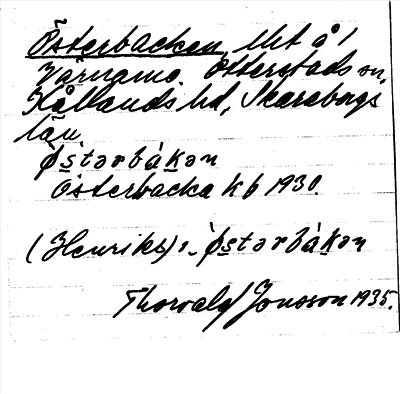 Österbacken, lht å 1
Väringmo. Otterstads sn,
Kållands hd, Skaraborgs
län
Østərbàkən
Österbacka kb 1930.
(Henriks):- Østərbàkən
Thorvald Jonsson 1935.